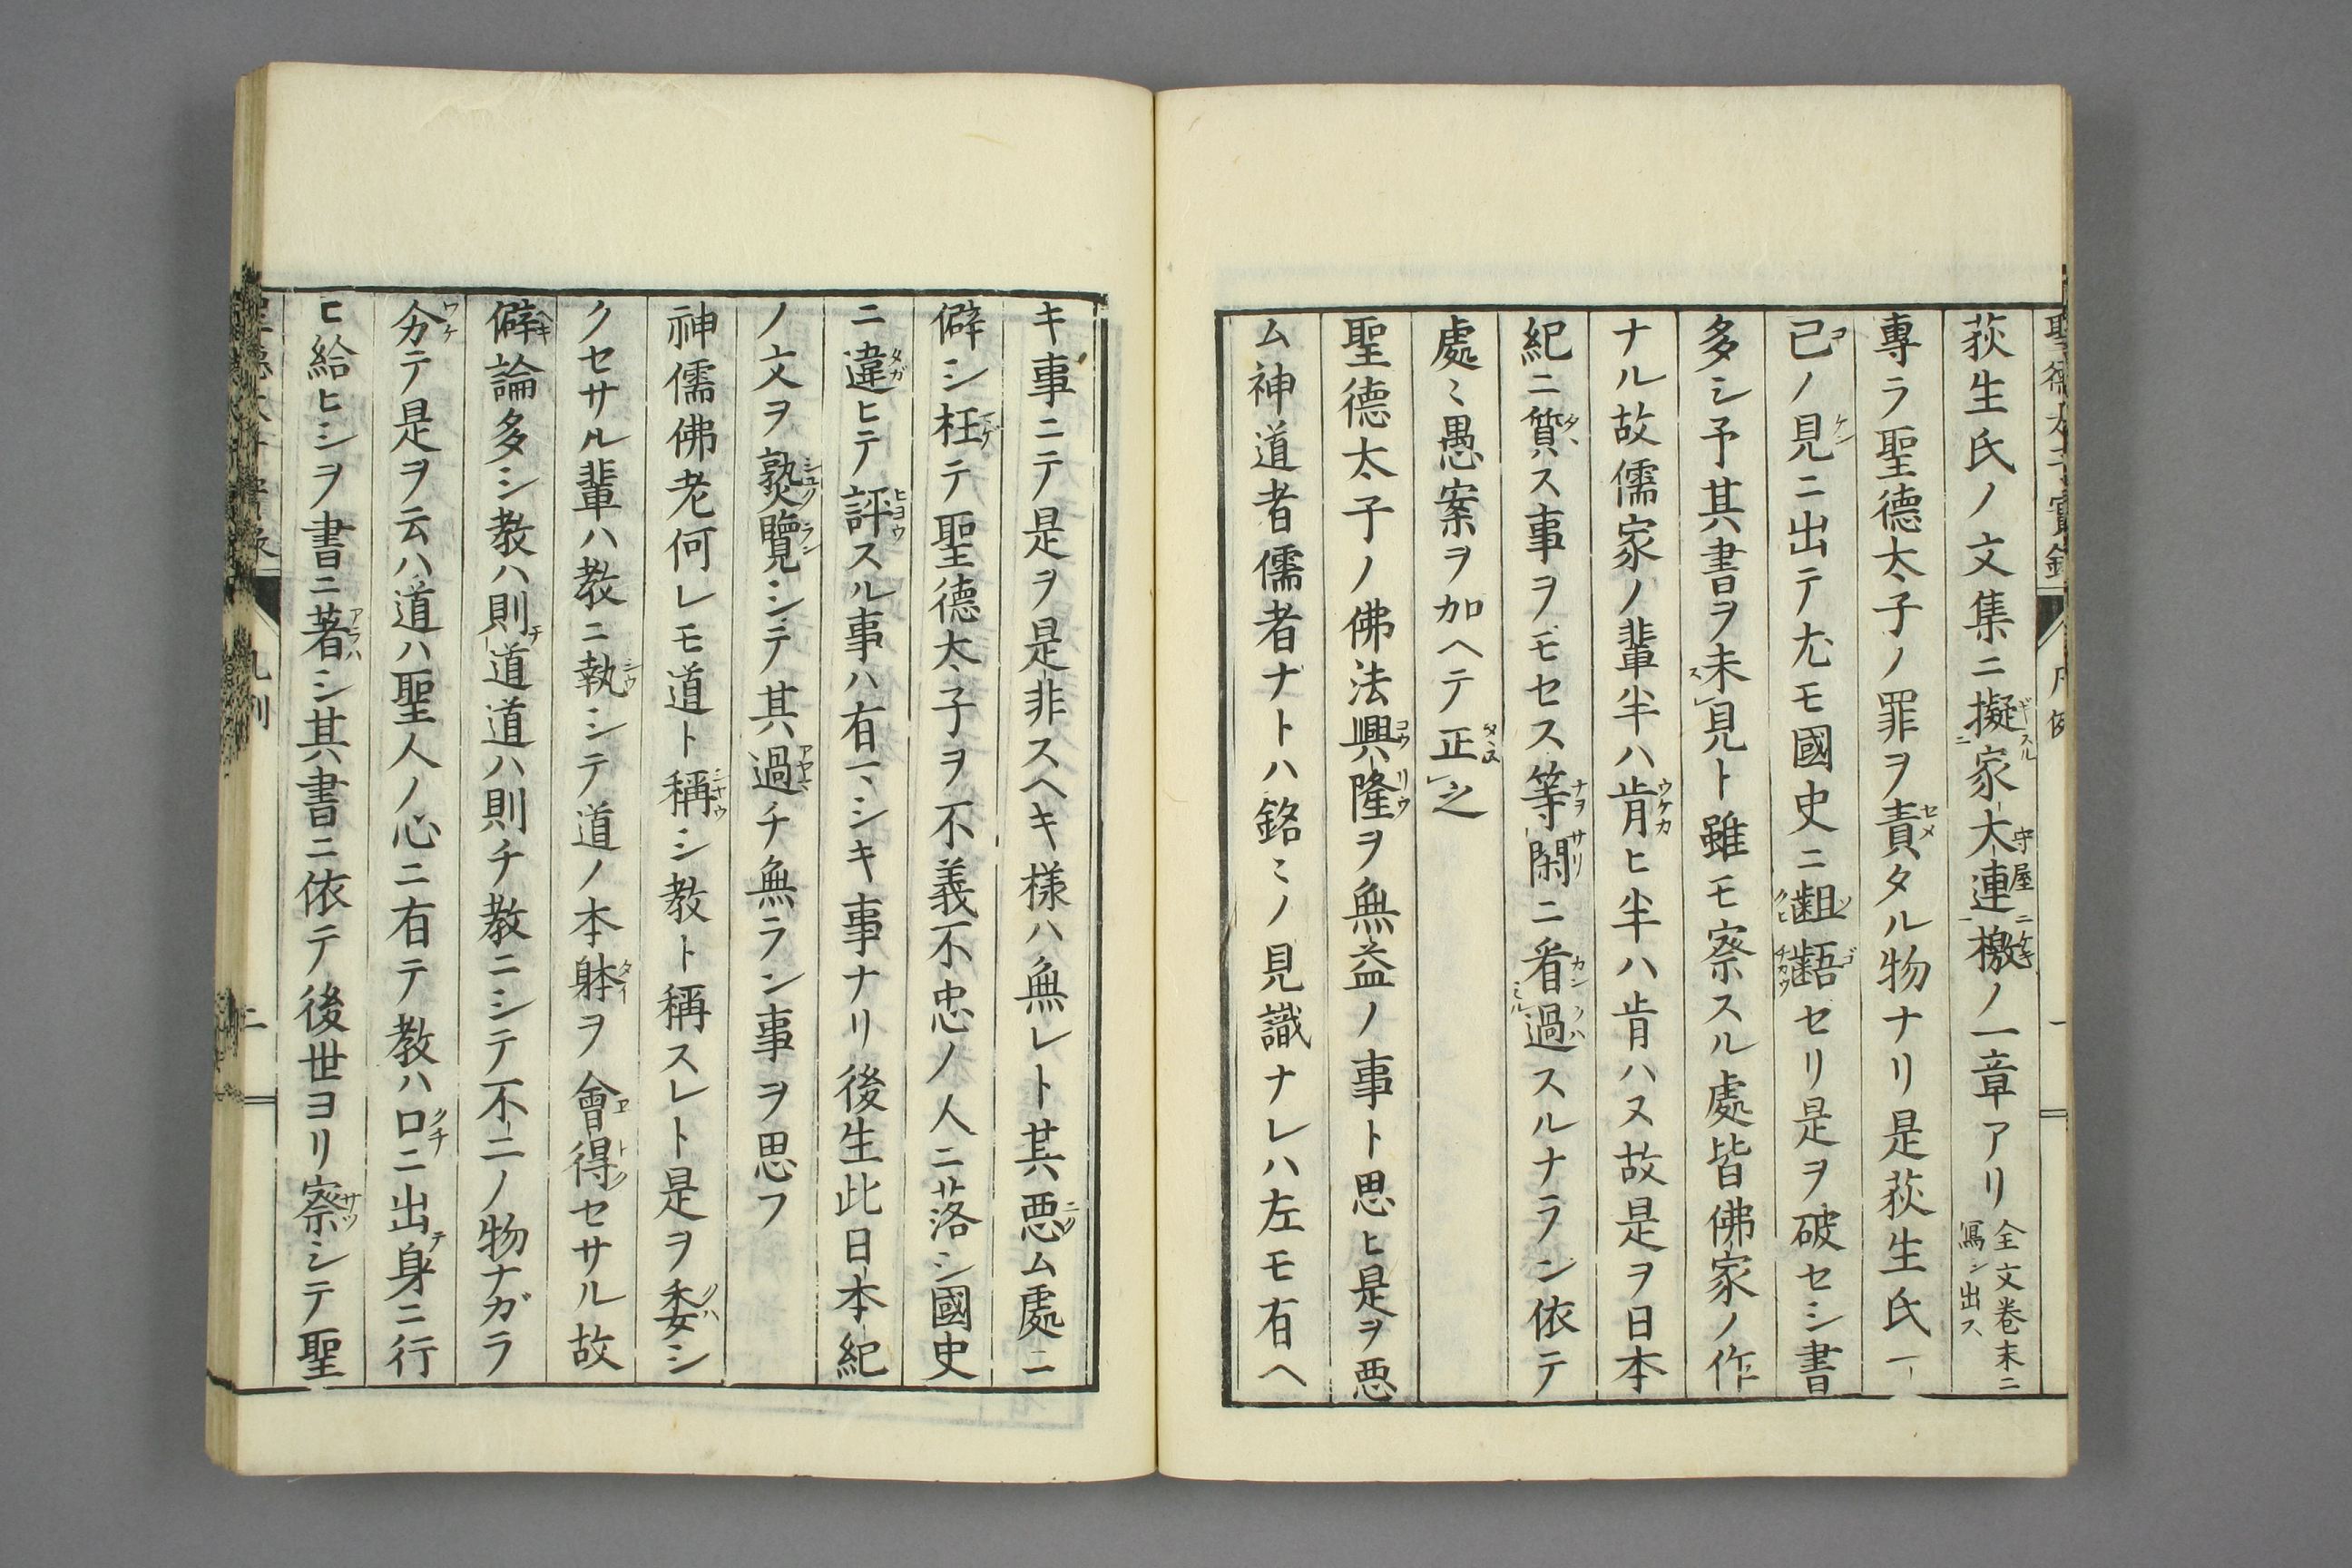 聖德太子實錄 凡例 一
荻生氏ノ文集ニ擬家大連檄ノ一章アリ全文卷末ニ寫シ出ス
專ラ聖德太子ノ罪ヲ責タル物ナリ是荻生氏一
己ノ見ニ出テ尤モ國史ニ齟齬セリ是ヲ破セシ書
多シ予其書ヲ未見ト雖モ察スル處皆佛家ノ作
ナル故儒家ノ輩半ハ肯ヒ半ハ肯ハヌ故是ヲ日本
紀ニ質ス事ヲモセス等閑ニ看過スルナラン依テ
處〻愚案ヲ加ヘテ正之
聖德太子ノ佛法興隆ヲ無益ノ事ト思ヒ是ヲ悪
ム神道者儒者ナトハ銘〻ノ見識ナレハ左モ有ヘ
キ事ニテ是ヲ是非スヘキ樣ハ無レト其悪ム處ニ
僻シ枉テ聖德太子ヲ不義不忠ノ人ニ落シ國史
ニ違ヒテ評スル事ハ有マシキ事ナリ後生此日本紀
ノ文ヲ熟覽シテ其過チ無ラン事ヲ思フ
神儒佛老何レモ道ト稱シ教ト稱スレト是ヲ委シ
クセサル輩ハ教ニ執シテ道ノ本躰ヲ會得セサル故
僻論多シ教ハ則道道ハ則チ教ニシテ不二ノ物ナガラ
分テ是ヲ云ハ道ハ聖人ノ心ニ有テ教ハ口ニ出身ニ行
ヒ給ヒシヲ書ニ著シ其書ニ依テ後世ヨリ察シテ聖
二